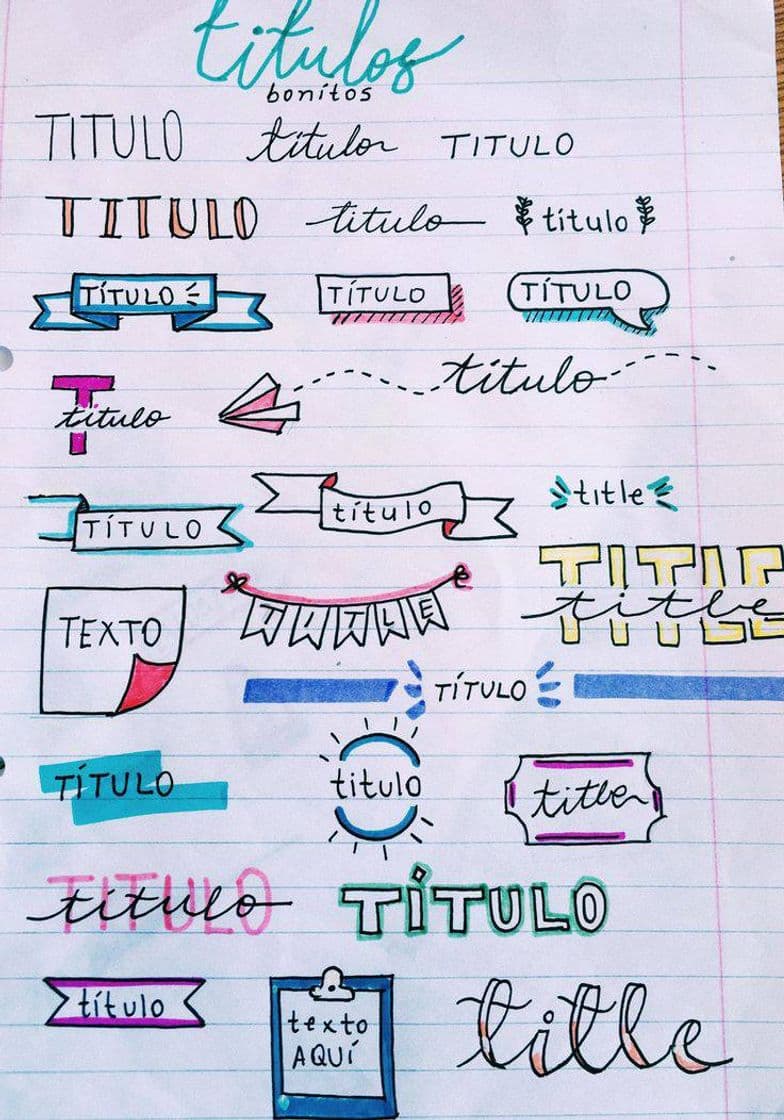 titulos
bonitos
TITULO titulo TITULO
TITULO titulo título
TÍTULO TÍTULO TÍTULO
T titulo titulo
TÍTULO título title
TEXTO TITLE TITLE title
TÍTULO
TÍTULO titulo title
TITULO titulo TÍTULO
título texto AQUÍ title